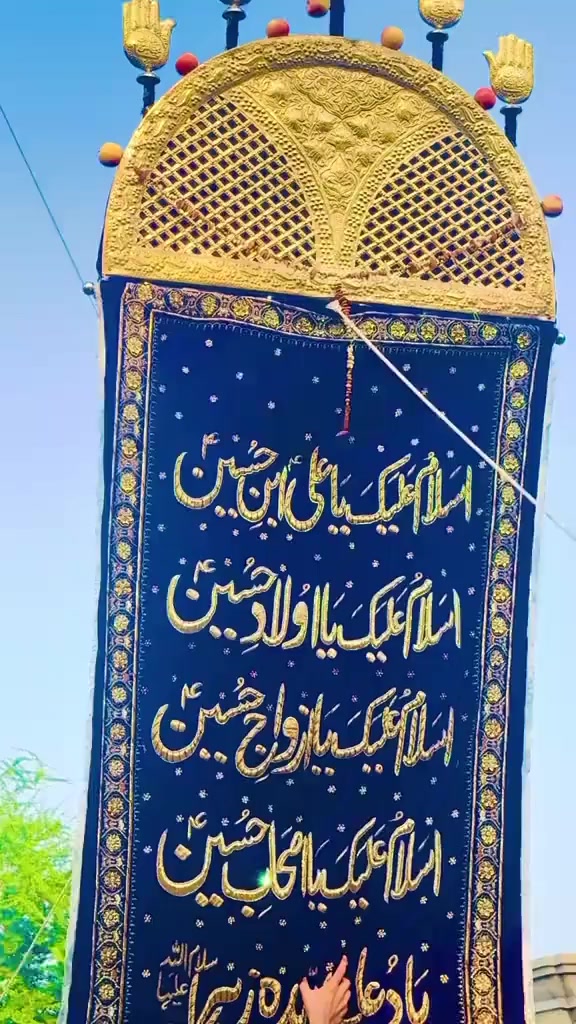 اسلامُ علیک یا علیؑ ابنِ حُسینؑ
اسلامُ علیک یا اوُلادِ حسُینؑ
اسلامُ علیک یا ازواجِ حُسینؑ
اسلامُ علیک یا اصحابِ حُسینؑ
یا دُعا زہرا سلام اللہ علیہا